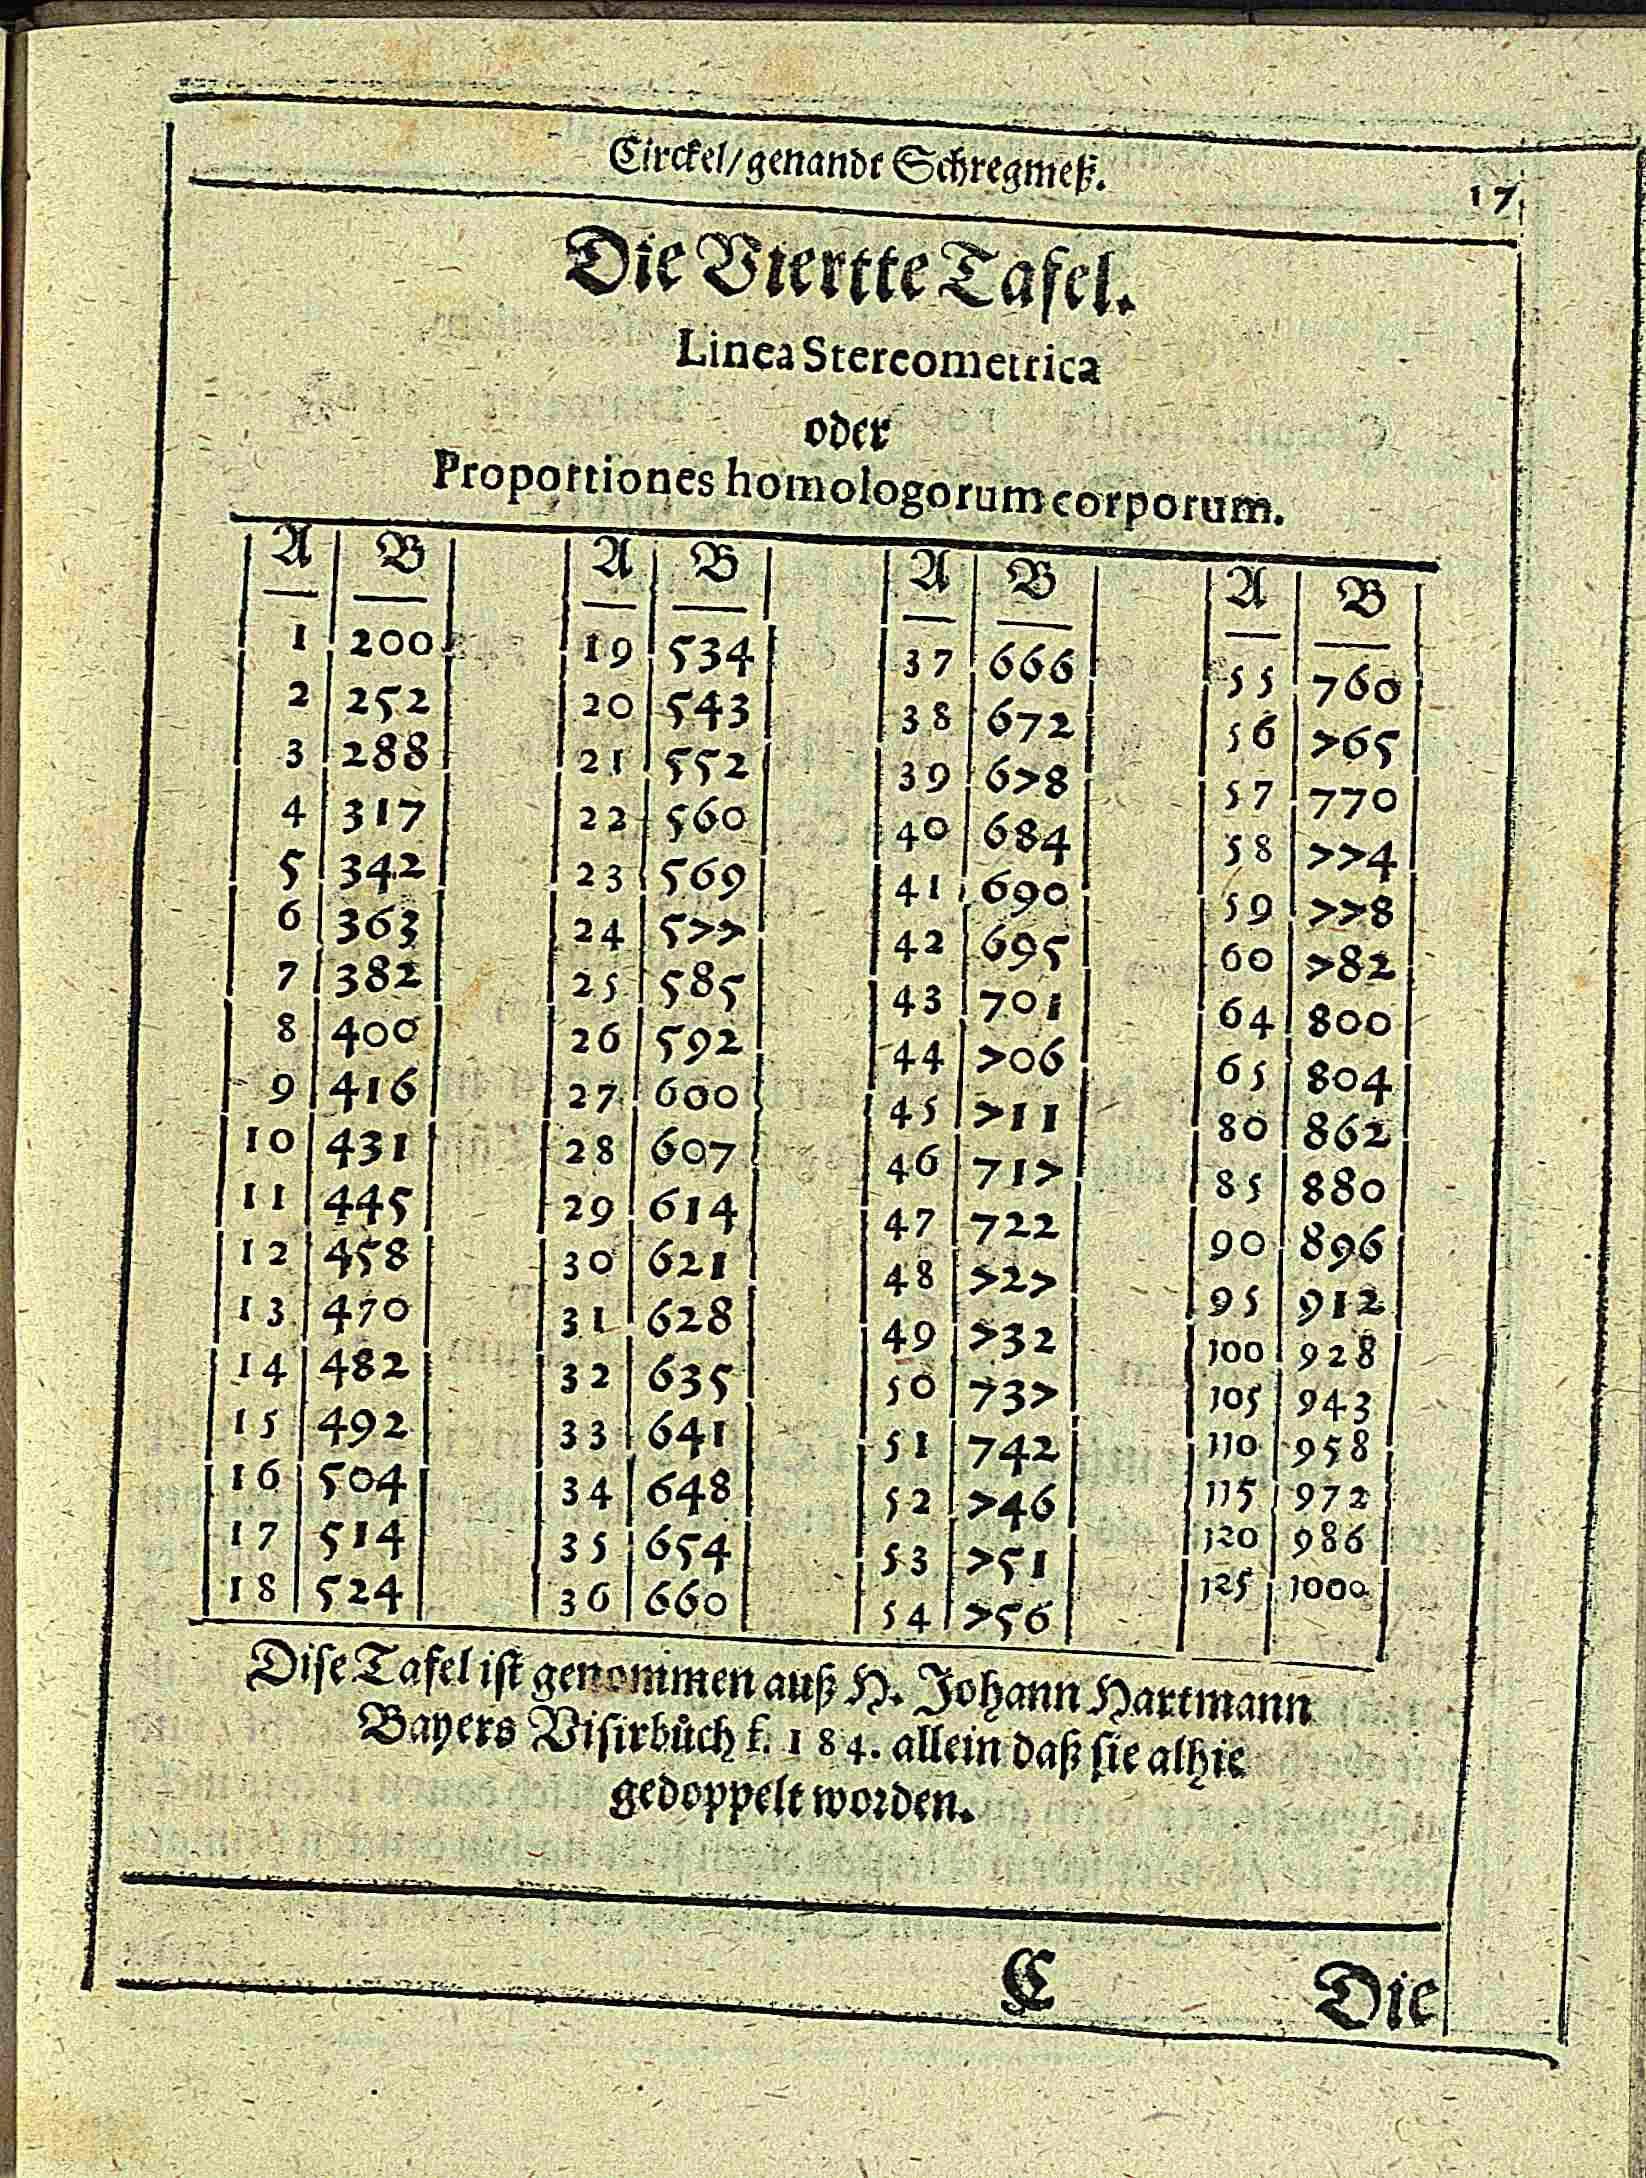 Circkel/genandt Schregmeß. 17
Die Viertte Tafel.
Linea Stereometrica
oder
Proportiones homologorum corporum.
A B A B A B A B
1 200 19 534 37 666 55 760
2 252 20 543 38 672 56 765
3 288 21 552 39 678 57 770
4 317 22 560 40 684 58 774
5 342 23 569 41 690 59 778
6 363 24 577 42 695 60 782
7 382 25 585 43 701 64 800
8 400 26 592 44 706 65 804
9 416 27 600 45 711 80 862
10 431 28 607 46 717 85 880
11 445 29 614 47 722 90 896
12 458 30 621 48 727 95 912
13 470 31 628 49 732 100 928
14 482 32 635 50 737 105 943
15 492 33 641 51 742 110 958
16 504 34 648 52 746 115 972
17 514 35 654 53 751 120 986
18 524 36 660 54 756 125 1000
Dise Tafel ist genommen auß H. Johann Hartmann
Bayers Visirbůch f. 184. allein daß sie alhie
gedoppelt worden.
C Die